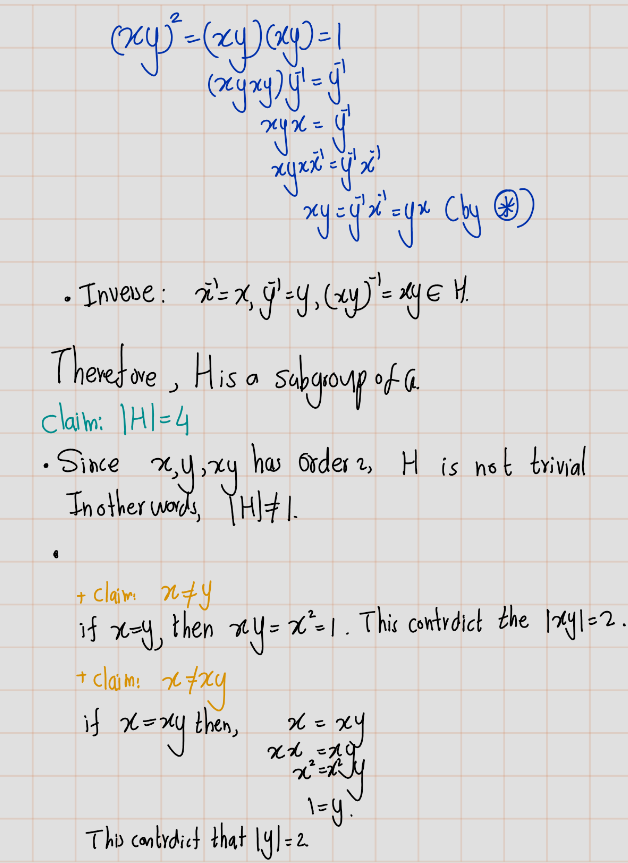 (xy)² = (xy)(xy) = 1
(xyxy)y⁻¹ = y⁻¹
xyx = y⁻¹
xyxx⁻¹ = y⁻¹x⁻¹
xy = y⁻¹x⁻¹ = yx (by ⊛)
• Inverse: x⁻¹ = x, y⁻¹ = y, (xy)⁻¹ = xy ∈ H.
Therefore, H is a subgroup of G.
Claim: |H| = 4
• Since x, y, xy has order 2, H is not trivial
In other words, |H| ≠ 1.
•
+ Claim: x ≠ y
if x = y, then xy = x² = 1. This contrdict the |xy| = 2.
+ Claim: x ≠ xy
if x = xy then, x = xy
xx = xxy
x² = x²y
1 = y.
This contrdict that |y| = 2